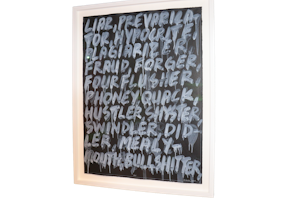 LIAR,
TOR, HYPOCRITE,
PLAGIARIZER,
FORGER,
FOUR FLUSHER,
PHONEY, QUACK,
HUSTLER, SHYSTER,
SWINDLER, DID-
LER, MEALY-
MOUTH, BULLSHITTER,